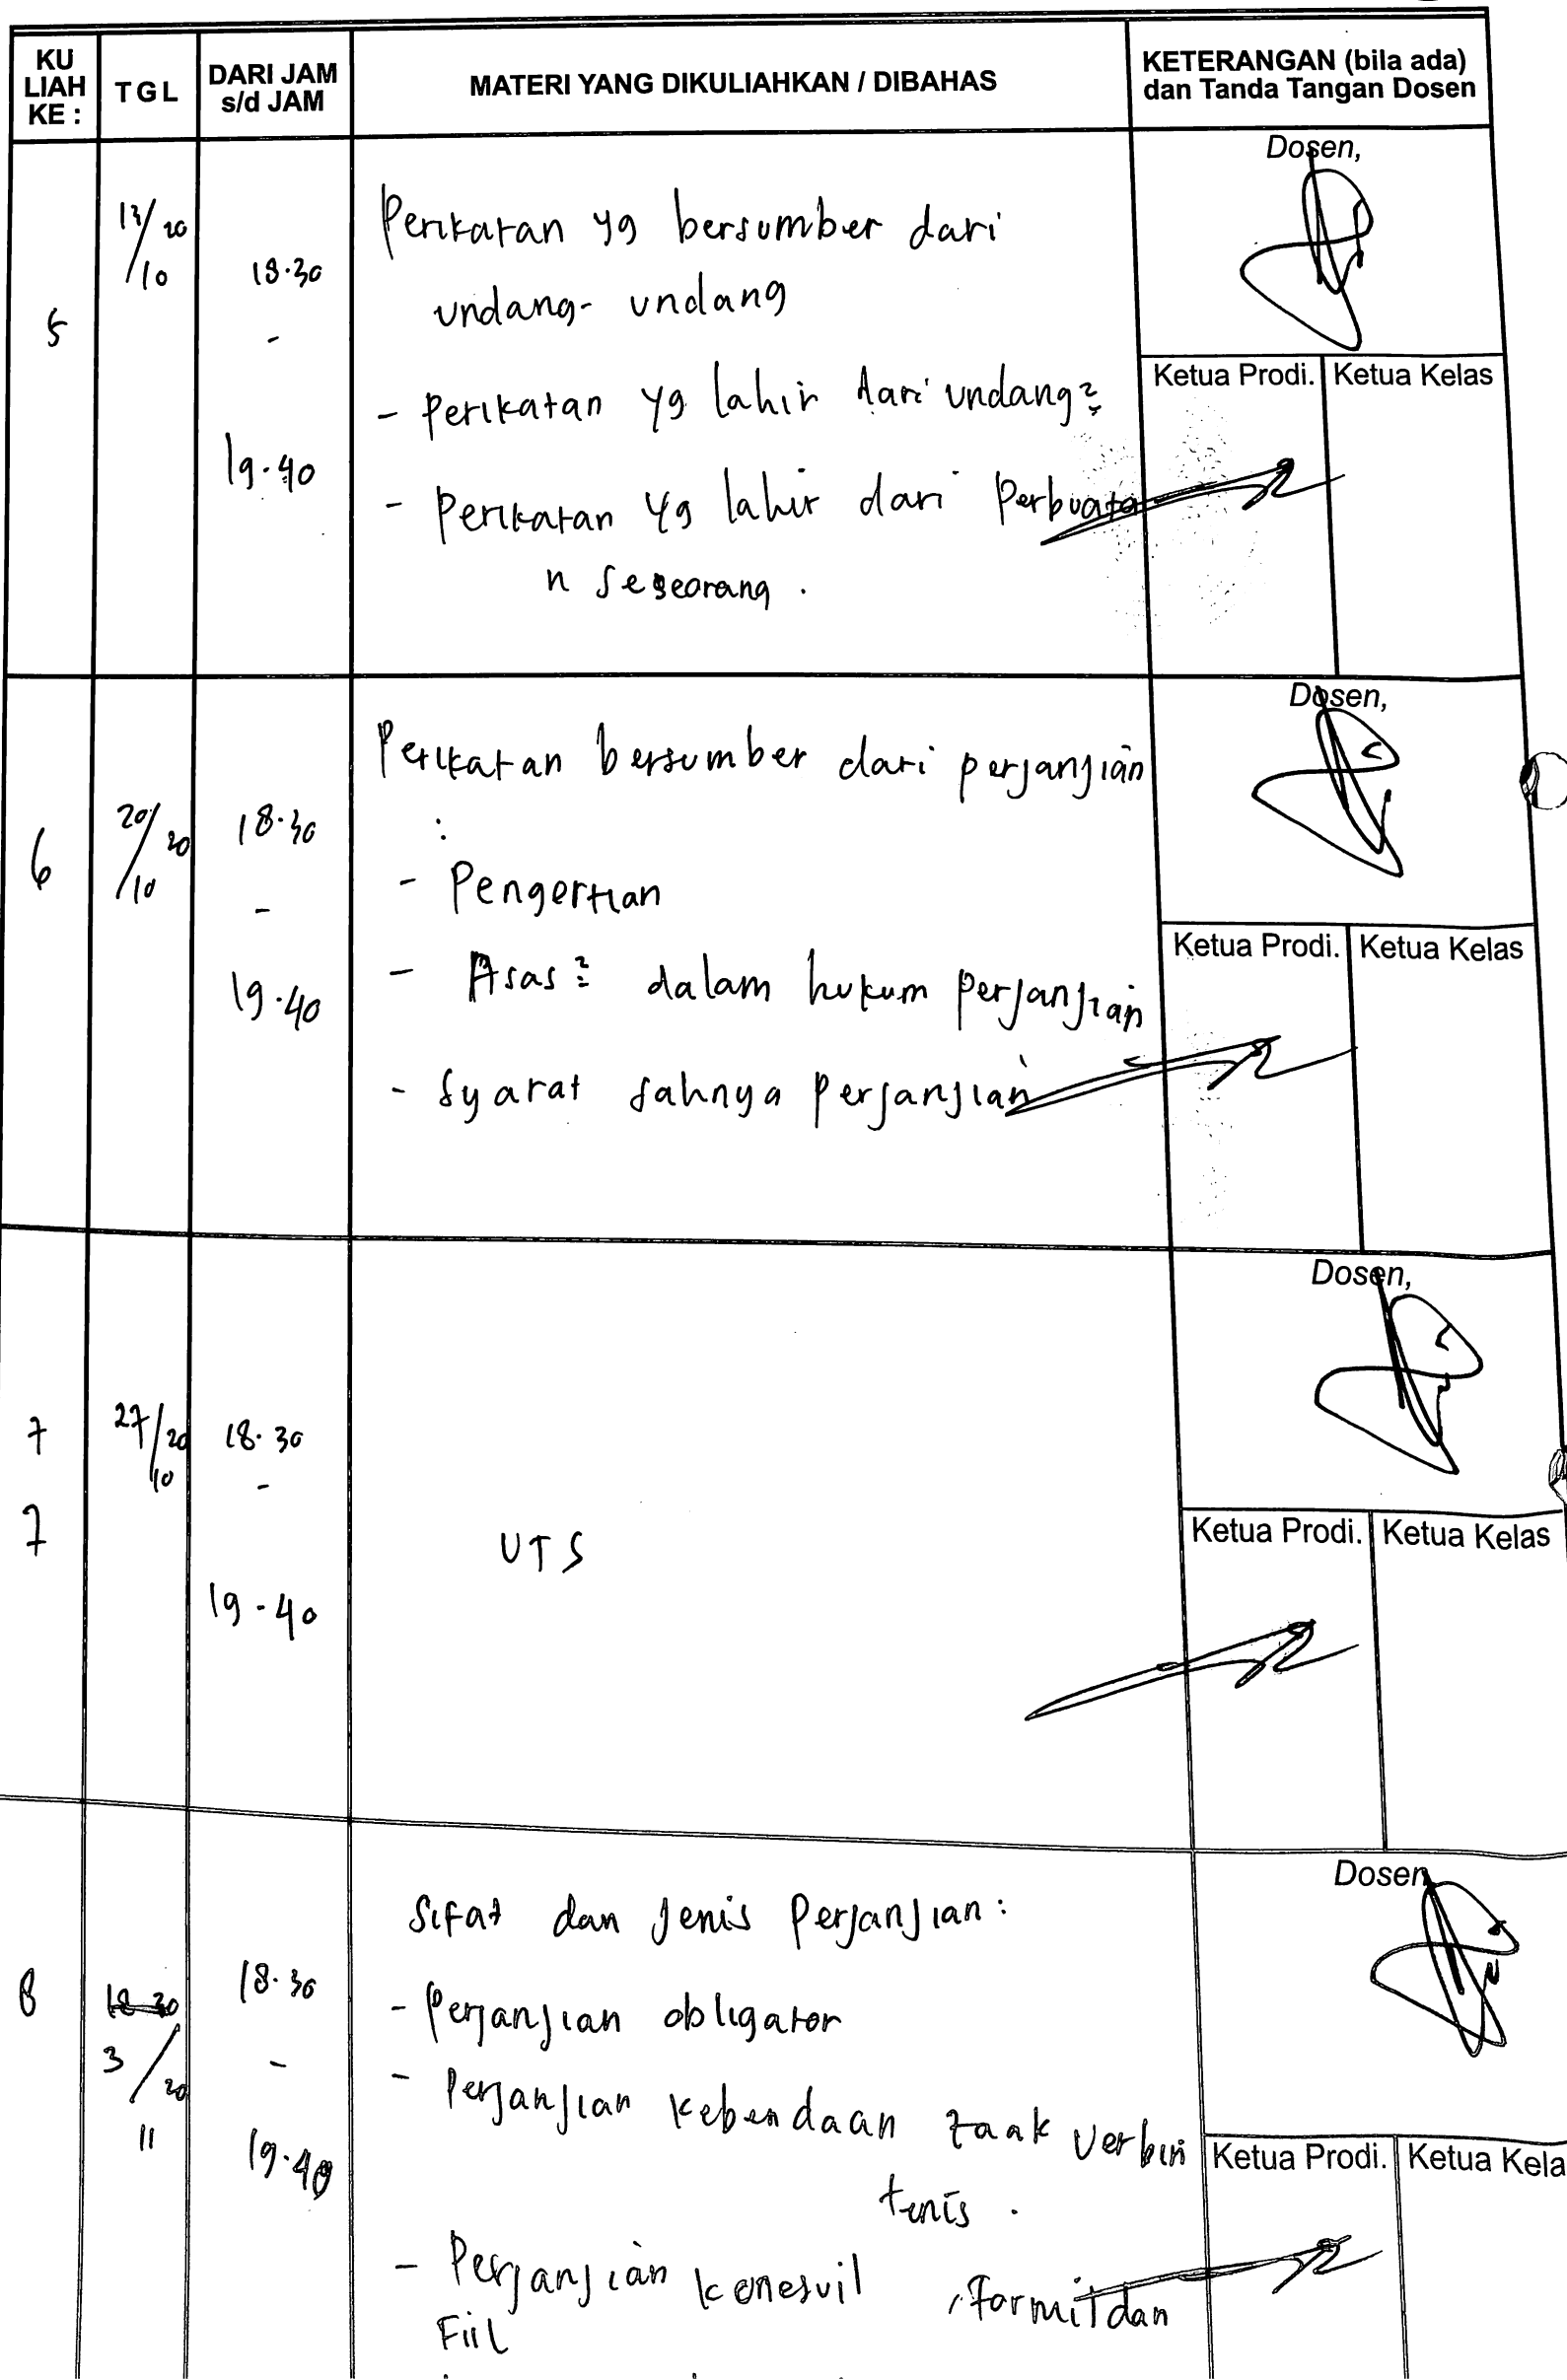 KU LIAH KE : TGL DARI JAM s/d JAM MATERI YANG DIKULIAHKAN / DIBAHAS KETERANGAN (bila ada) dan Tanda Tangan Dosen
Dosen,
5 13/10 20 18.30 - 19.40
Perikatan yg bersumber dari
undang-undang
- Perikatan yg lahir dari undang2
- Perikatan yg lahir dari Perbuata
n seseorang .
Ketua Prodi. Ketua Kelas
Dosen,
6 20/10 20 18.30 - 19.40
Perikatan bersumber dari perjanjian
:
- Pengertian
- Asas2 dalam hukum perjanjian
- Syarat sahnya Perjanjian
Ketua Prodi. Ketua Kelas
Dosen,
7 27/10 20 18.30 - 19-40
7
UTS
Ketua Prodi. Ketua Kelas
Dosen
8 18 30 3/11 20 18.30 - 19.40
Sifat dan Jenis Perjanjian :
- Perjanjian obligator
- Perjanjian kebendaan zaak verbin
tenis .
- Perjanjian konesuil , Formil dan
Fiil
Ketua Prodi. Ketua Kela